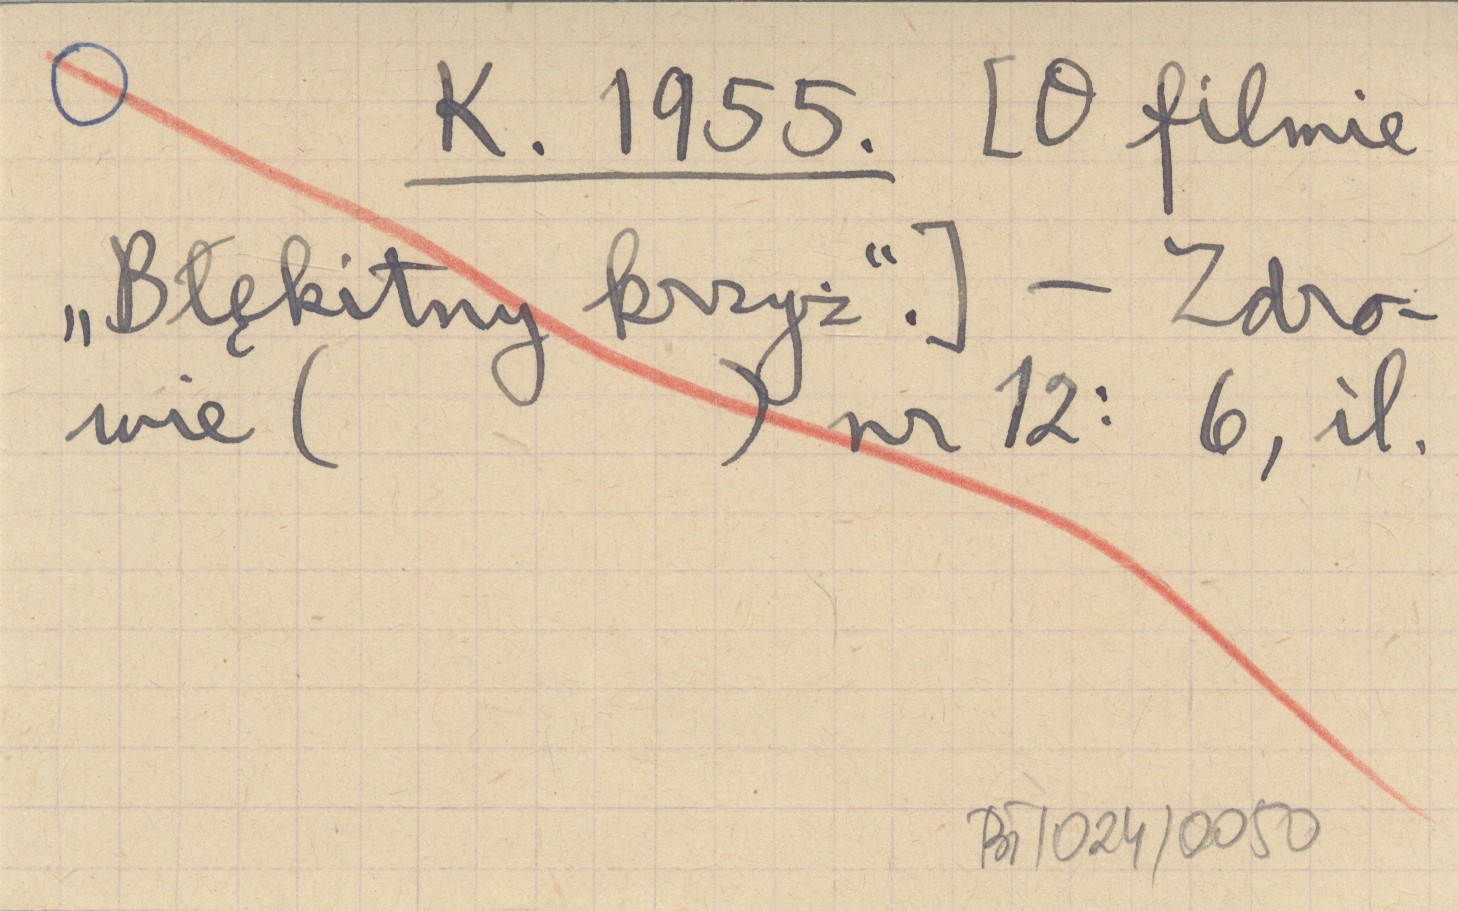 K. 1955. [O filmie
„Błękitny krzyż“.] — Zdro-
wie (          ) nr 12: 6, il.
BT/024/0050